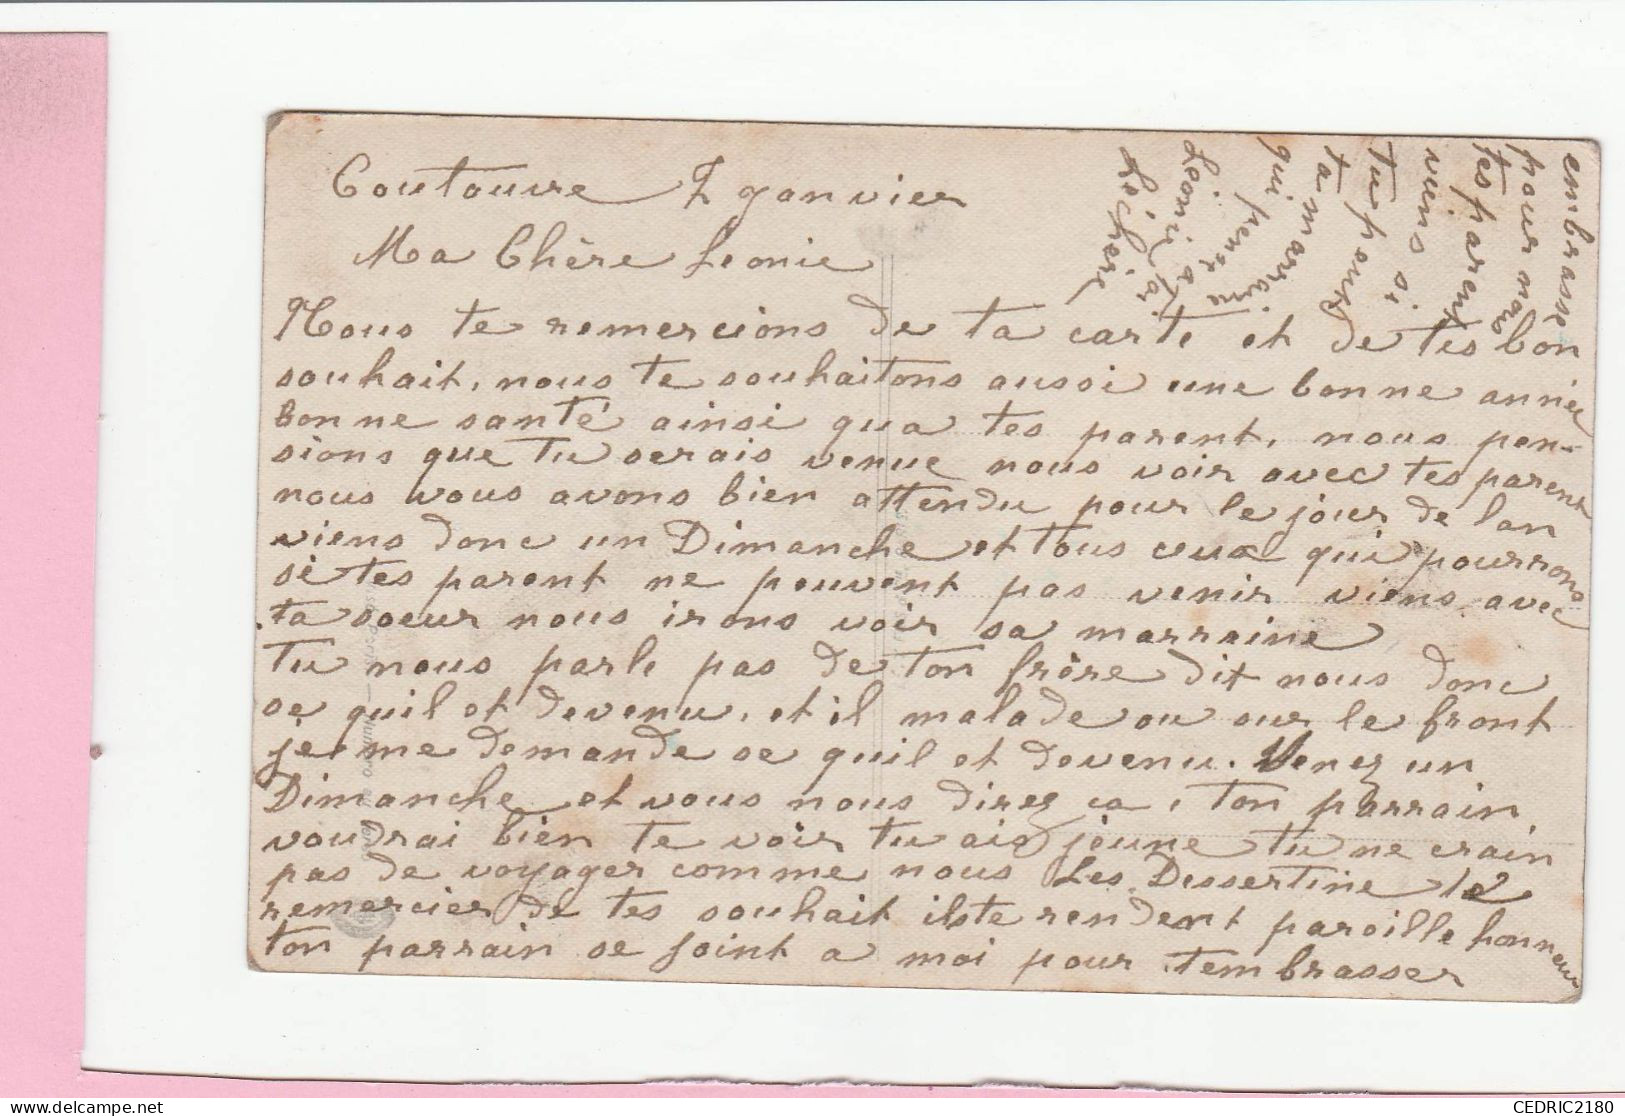 Coutouvre 7 ganvier
Ma Chère Leonie
Nous te remercions de ta carte et de tes bon
souhait, nous te souhaitons aussi une bonne année
bonne santé ainsi qua tes parent, nous pen-
sions que tu serais venue nous voir avec tes parent
nous vous avons bien attendu pour le jour de lan
viens donc un Dimanche et tous ceux qui pourrons
si tes parent ne peuvent pas venir viens avec
ta soeur nous irons voir sa marraine
Tu nous parle pas de ton frère dit nous donc
se quil et devenu, et il malade ou sur le front
je me demande se quil et devenu. Venez un
Dimanche et vous nous direz ca, ton parrain
voudrai bien te voir tu ais jeune tu ne crain
pas de voyager comme nous Les Dessertine te
remercier de tes souhait ils te rendent pareille honneur
ton parrain se joint a moi pour tembrasser
embrasse
pour nous
tes parent
viens si
tu peux
ta marraine
qui pense a toi
Léonie
CEDRIC2180